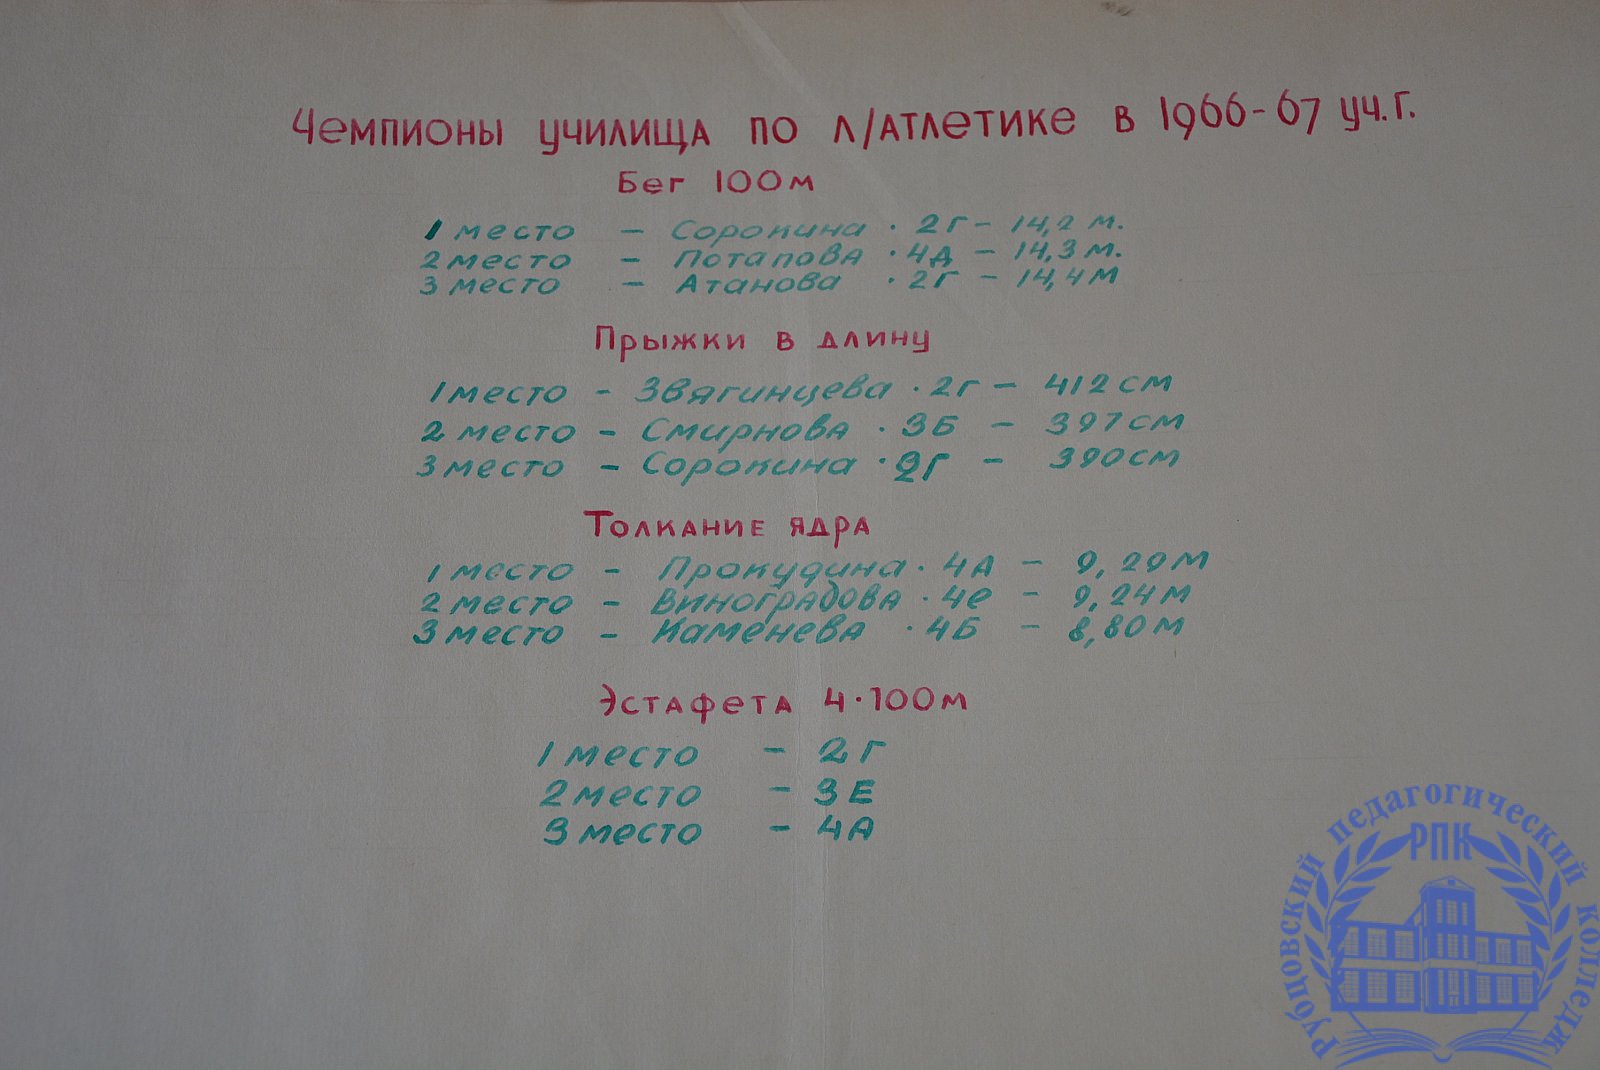 Чемпионы училища по л/атлетике в 1966-67 уч.г.
Бег 100м
1 место - Сорокина · 2г - 14,2 м.
2 место - Потапова · 4д - 14,3 м.
3 место - Атанова · 2г - 14,4 м
Прыжки в длину
1 место - Звягинцева · 2г - 412 см
2 место - Смирнова · 3Б - 397 см
3 место - Сорокина · 2г - 390 см
Толкание ядра
1 место - Прокудина · 4А - 9,29 м
2 место - Виноградова · 4е - 9,24 м
3 место - Каменева · 4Б - 8,80 м
Эстафета 4·100м
1 место - 2 Г
2 место - 3 Е
3 место - 4 А
Рубцовский педагогический колледж
РПК